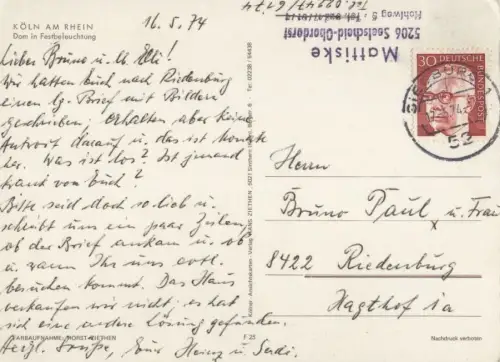 KÖLN AM RHEIN
Dom in Festbeleuchtung
16.5.74
Lieber Bruno u. lb. Elli!
Wir hatten Euch nach Riedenburg
einen lg. Brief mit Bildern
geschrieben, erhalten aber keine
Antwort darauf u. das ist Monate
her. Was ist los? Ist jemand
krank von Euch?
Bitte seid doch so lieb u.
schreibt uns ein paar Zeilen
ob der Brief ankam u. ob
u. wann Ihr uns evtl.
besuchen kommt. Das Haus
verkaufen wir nicht, es hat
sich eine andere Lösung gefunden.
Herzl. Grüße, Eure Heinz u.
FARBAUFNAHME: HORST ZIETHEN
Kölner Ansichtskarten-Verlag HORST ZIETHEN
F 25
Mattiske
5206 Seelscheid-Oberdorst
Hohlweg 5
30
DEUTSCHE BUNDESPOST
SIEGBURG 1
52
Herrn
Bruno Paul u. Frau
8422 Riedenburg
Hagthof 1a
Nachdruck verboten